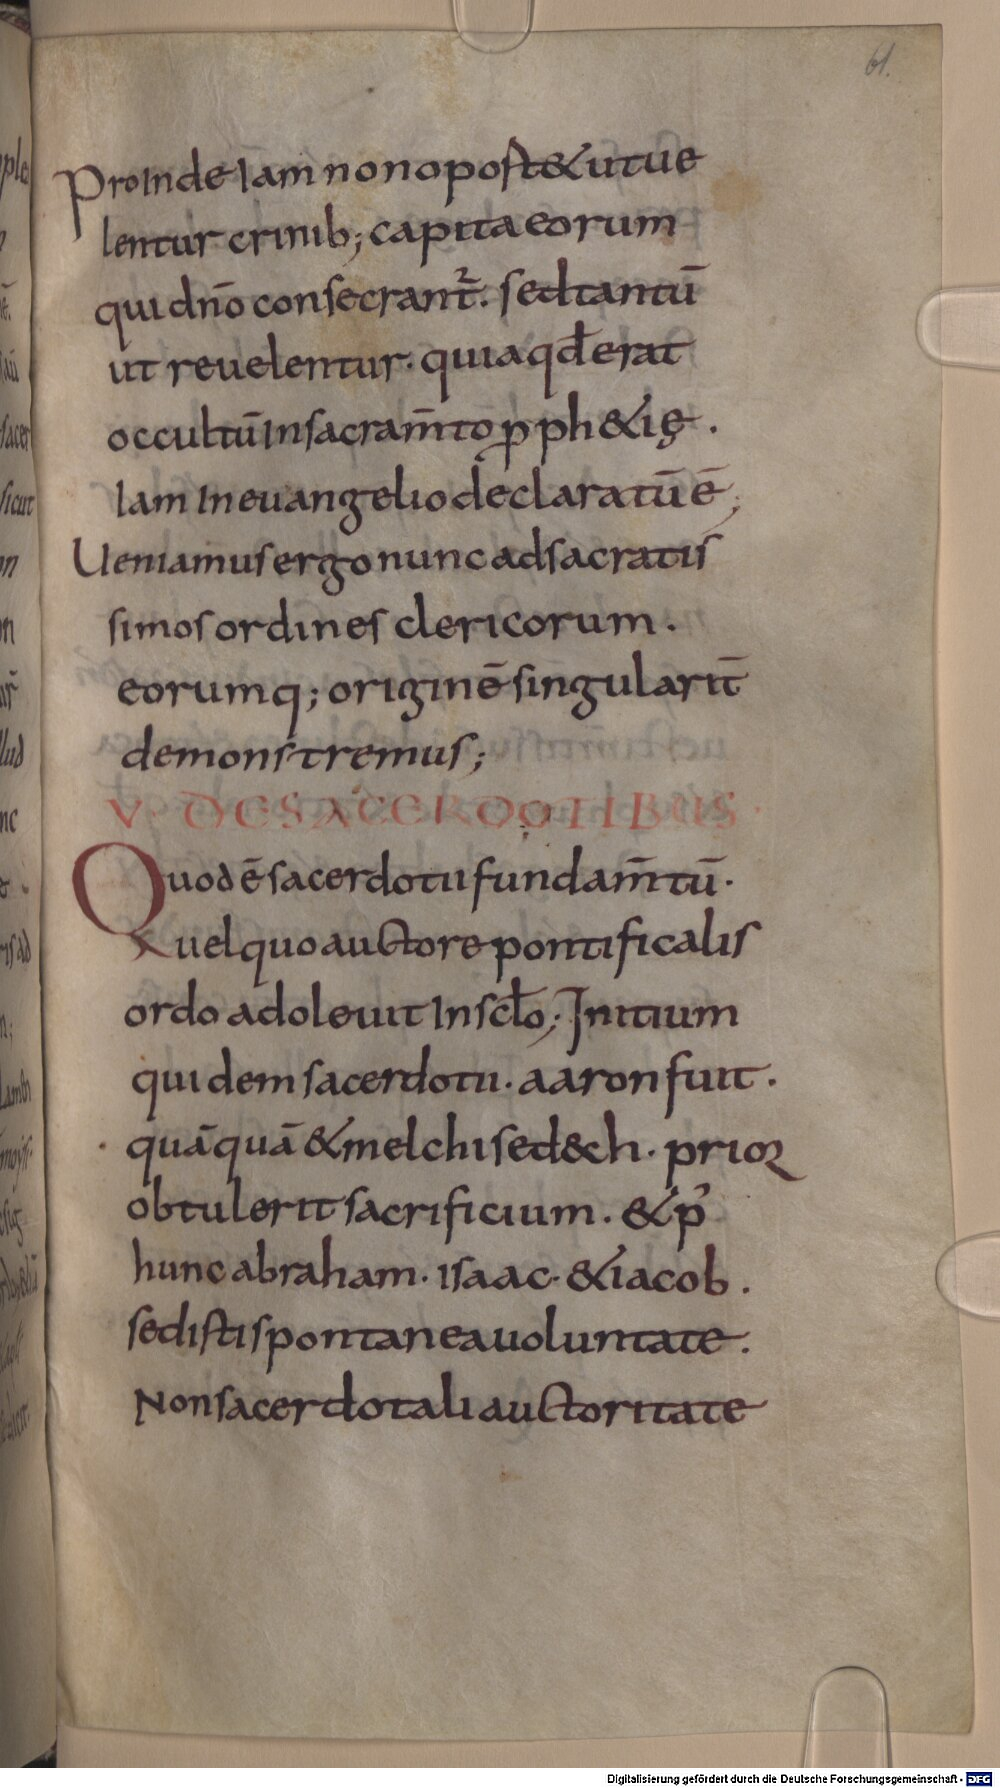 61.
Proinde Iam non oportet& utue
lentur crinib; capita eorum
qui dn̄o consecrant᷑. sed tantū
ut reuelentur. quia qđ erat
occultū In sacram̄to pph&ię.
Iam In euangelio declaratū ē;
Ueniamus ergo nunc ad sacratis
simos ordines clericorum.
eorumq; originē singularit̄
demonstremus;
V. DE SACERDOTIBUS.
Quod ē sacerdotii fundam̄tū.
uel quo auctore pontificalis
ordo adoleuit In scło; Initium
quidem sacerdotii. aaron fuit.
quāquā & melchised&ch. prior
obtulerit sacrificium. & p᾽
hunc abraham. isaac. & iacob.
sed isti spontanea uoluntate.
Non sacerdotali auctoritate
Digitalisierung gefördert durch die Deutsche Forschungsgemeinschaft - DFG